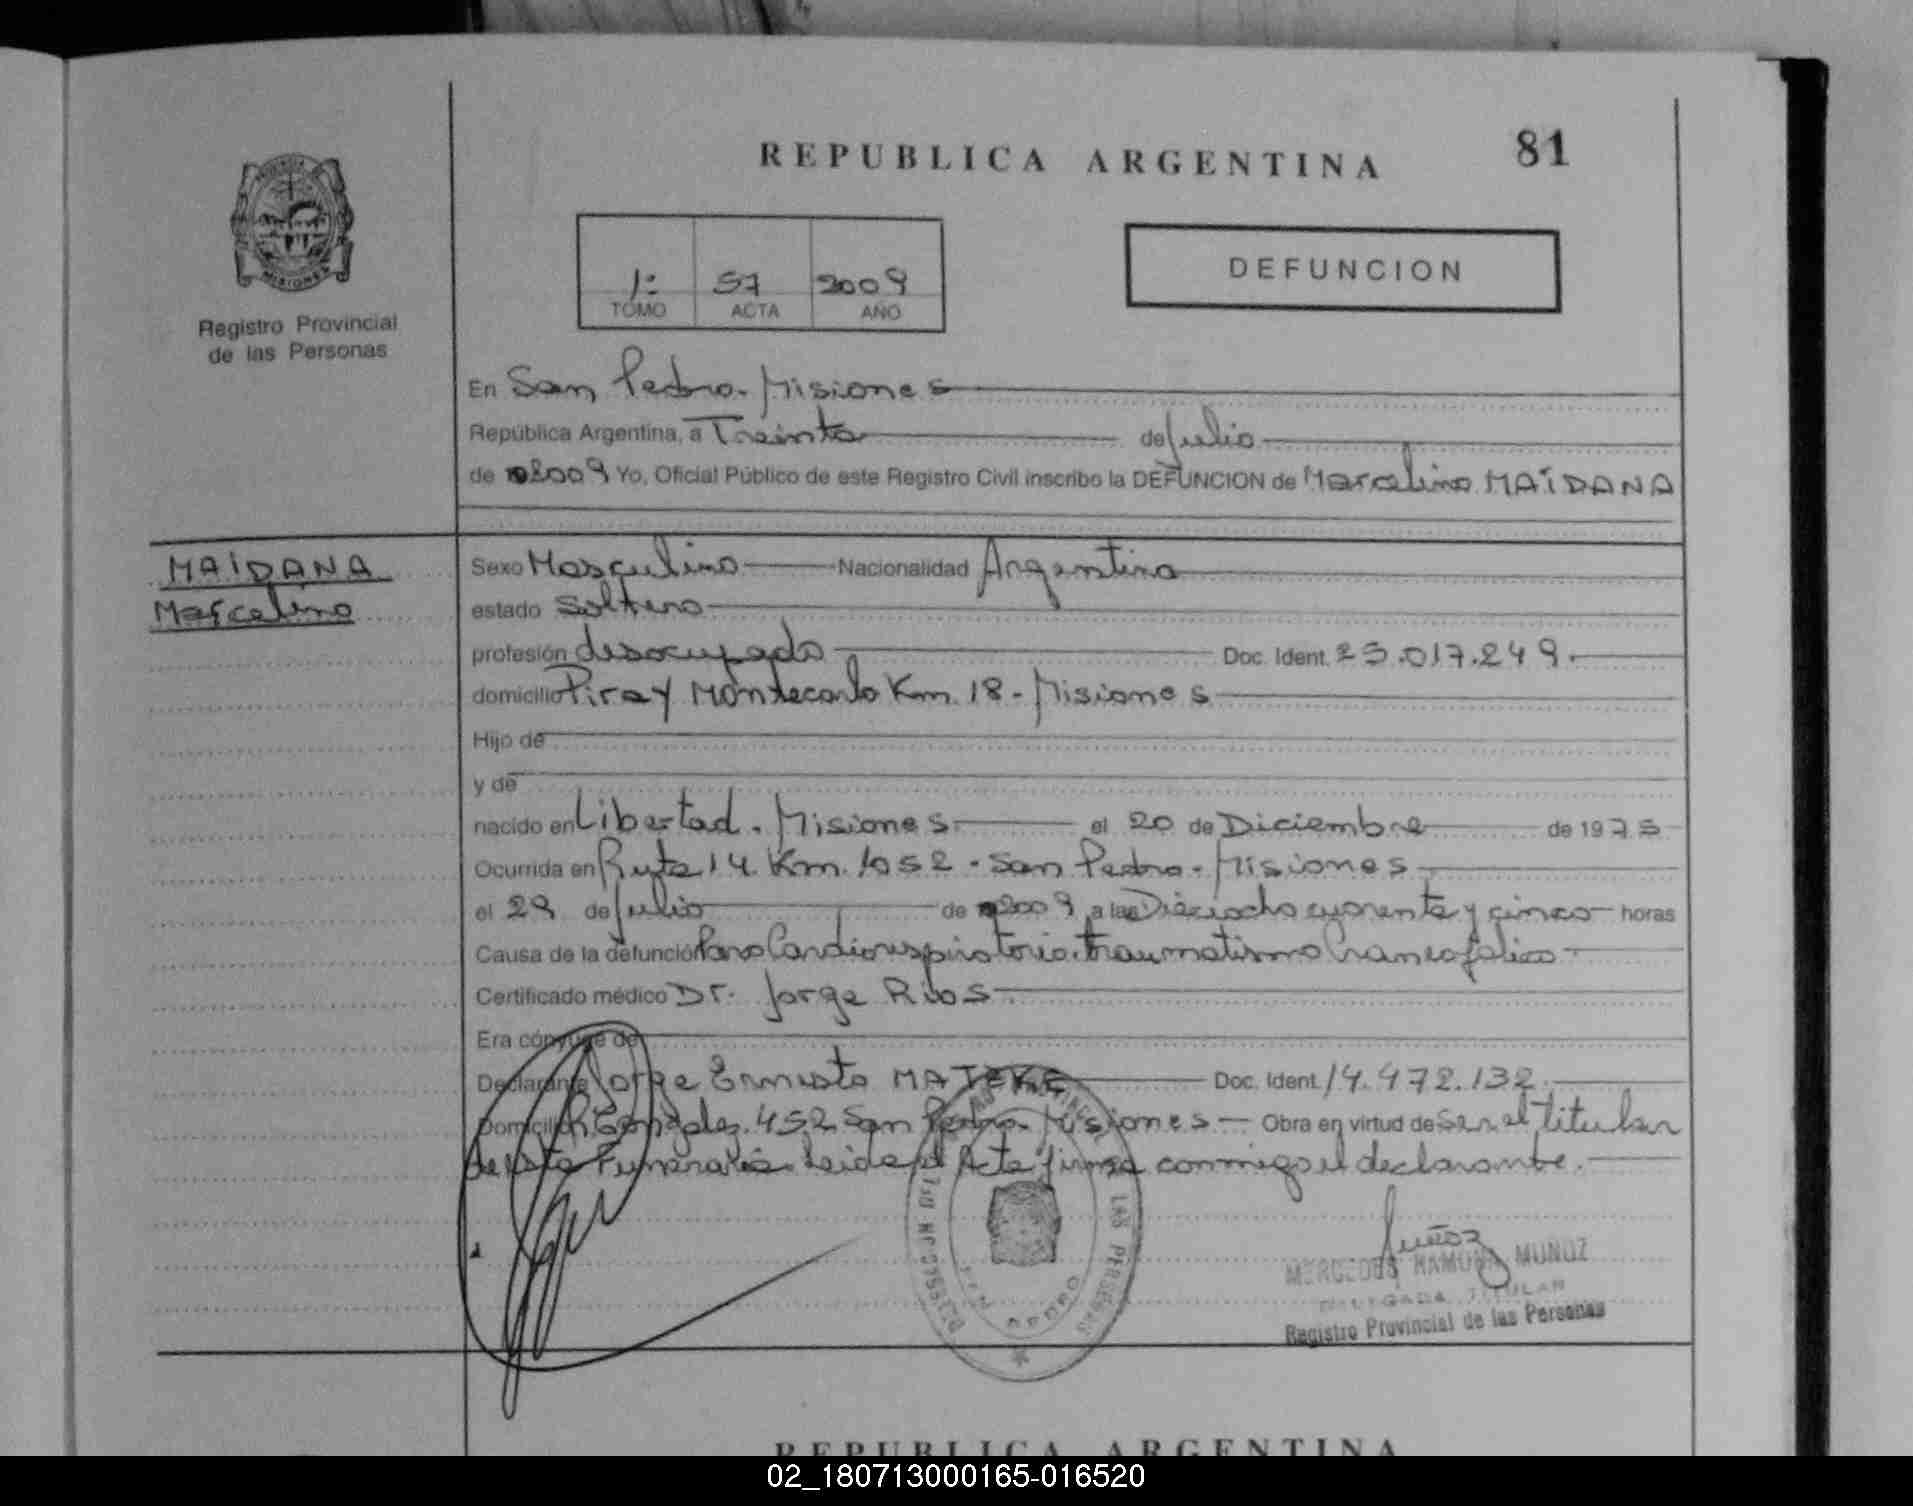 REPUBLICA ARGENTINA 81
1º 57 2009
TOMO ACTA AÑO
DEFUNCION
MISIONES
Registro Provincial
de las Personas
En San Pedro. Misiones
República Argentina, a Treinta de Julio
de 2009 Yo, Oficial Público de este Registro Civil inscribo la DEFUNCION de Marcelino MAIDANA
MAIDANA
Marcelino
Sexo Masculino Nacionalidad Argentina
estado Soltero
profesión desocupado Doc. Ident. 25.017.249.
domicilio Piray Montecarlo Km. 18 - Misiones
Hijo de
y de
nacido en Libertad. Misiones el 20 de Diciembre de 1975
Ocurrida en Ruta 14 Km. 1052 - San Pedro - Misiones
el 29 de Julio de 2009 a las Dieciocho cuarenta y cinco horas
Causa de la defunción Paro Cardiorespiratorio. traumatismo
Certificado médico Dr. Jorge Rios
Era cónyuge de
Declarante Jorge Ernesto Doc. Ident. 14.472.132
Domicilio 452 San Pedro. Misiones - Obra en virtud de ser el titular
de esta Funeraria. Leida el Acta firma conmigo el declarante.
LAS PERSONAS
Muñoz
MERCEDES RAMONA MUÑOZ
DELEGADA TITULAR
Registro Provincial de las Personas
REPUBLICA ARGENTINA
02_180713000165-016520